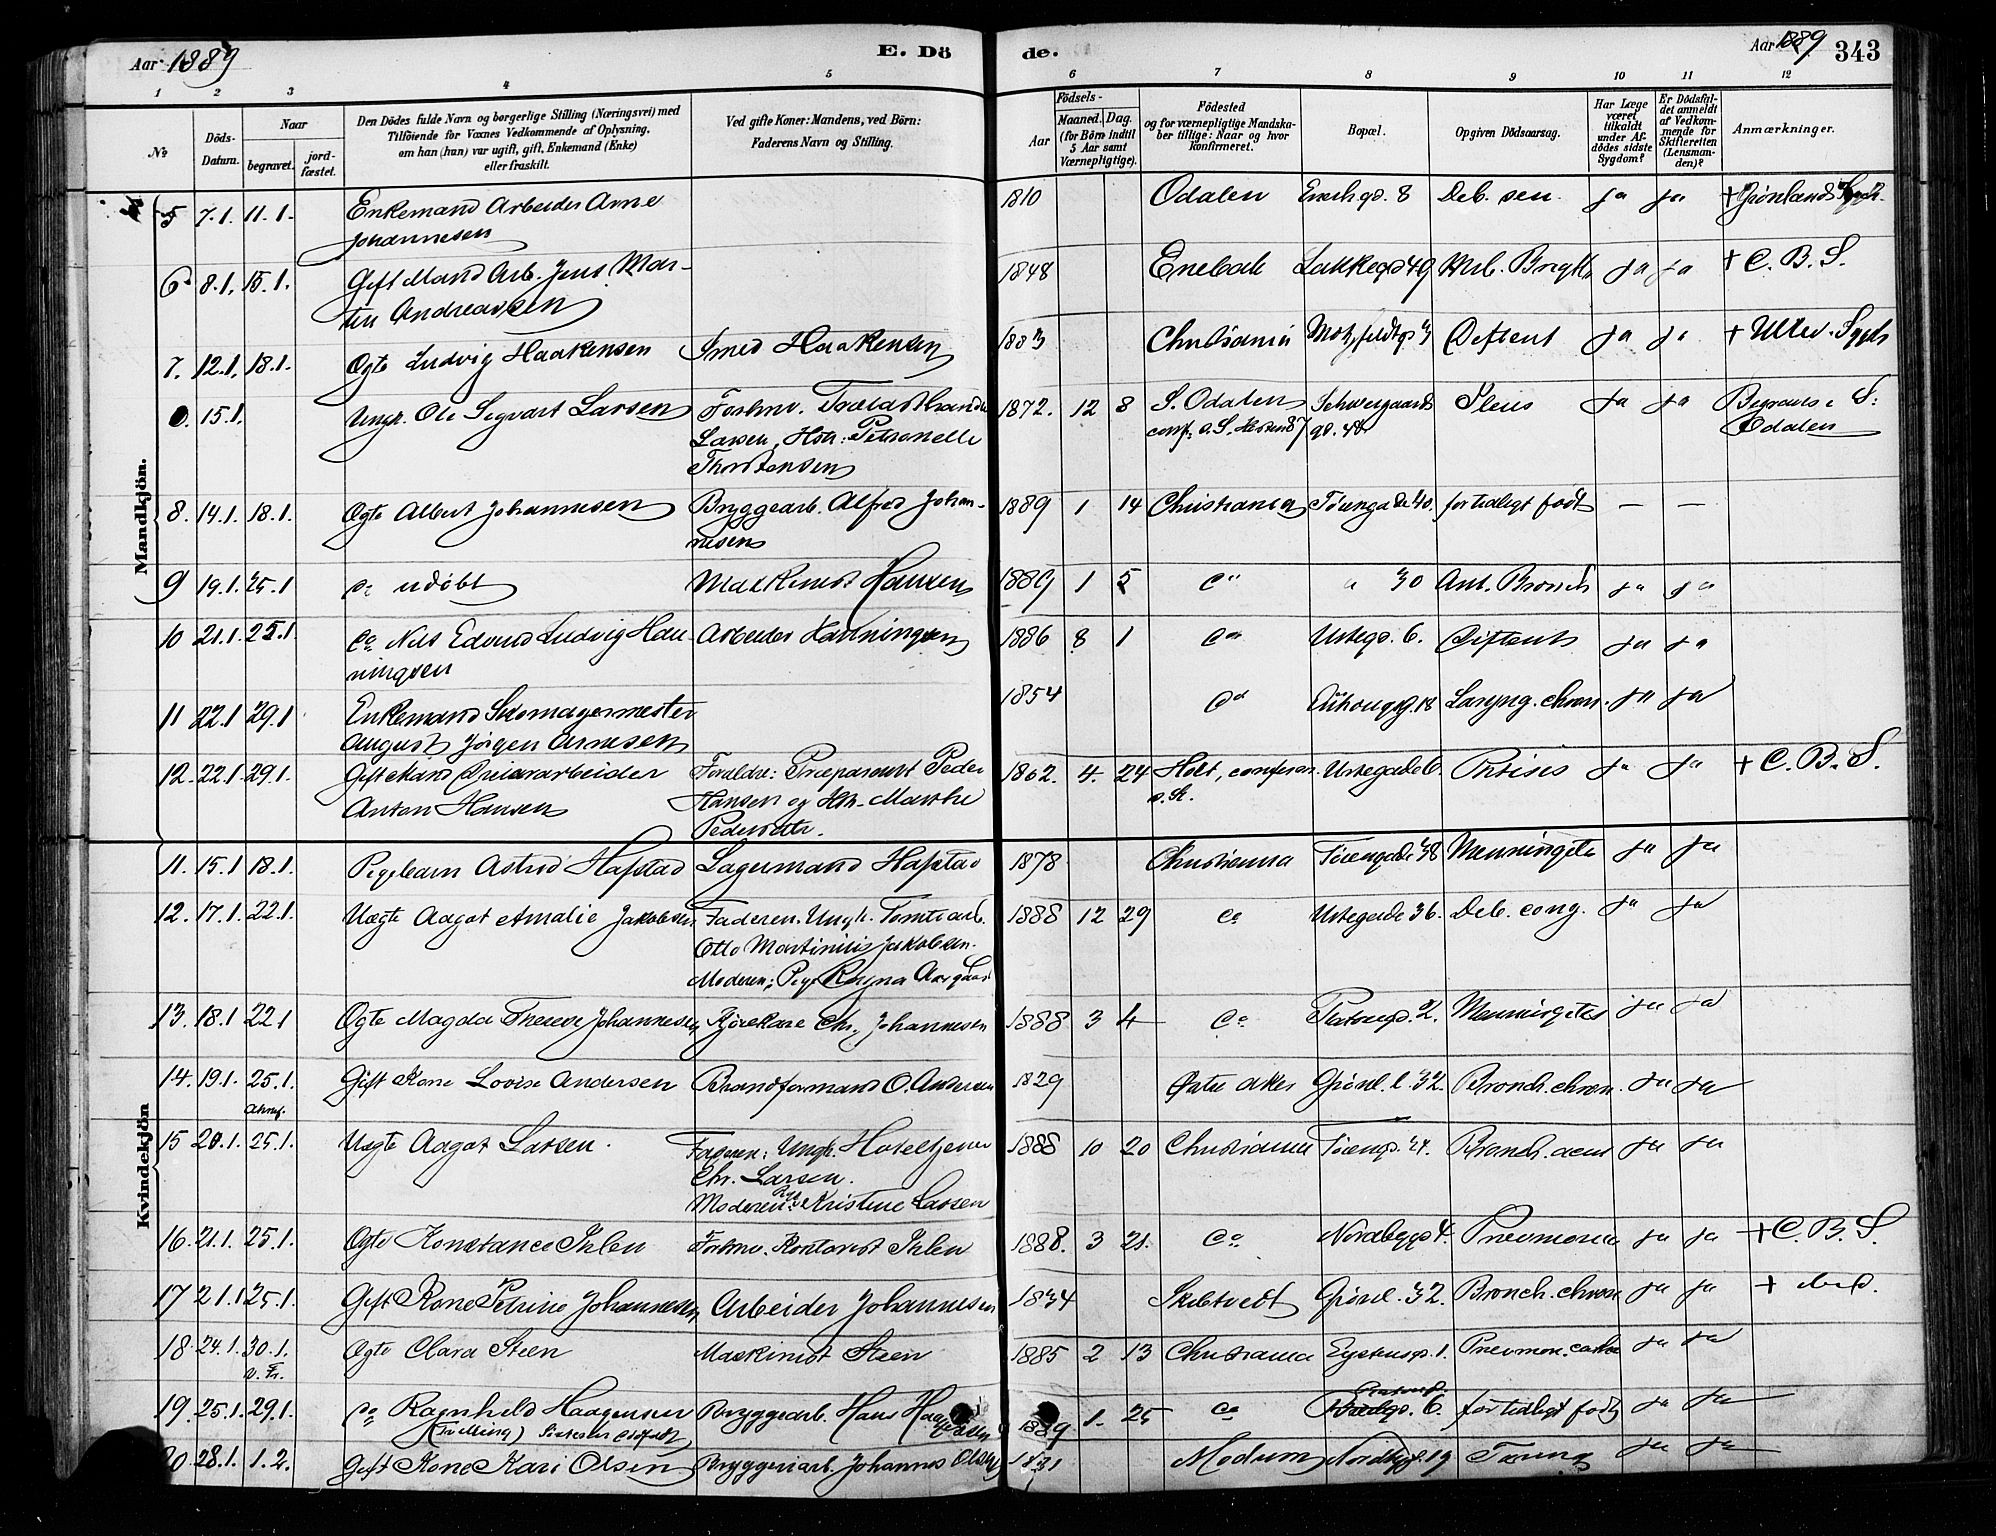 Aar 1889
E. Dö
de.
Aar 1889
343
1 2 3 4 5 6 7 8 9 10 11 12
No
Döds-Datum.
Naar
begravet.
jord-fæstet.
Den Dödes fulde Navn og borgerlige Stilling (Næringsvei) med
Tilföiende for Voxnes Vedkommende af Oplysning,
om han (hun) var ugift, gift, Enkemand (Enke)
eller fraskilt.
Ved gifte Koner: Mandens, ved Börn:
Faderens Navn og Stilling.
Födsels-
Aar
Maaned. Dag.
(for Börn indtil
5 Aar samt
Værnepligtige).
Födested
og for værnepligtige Mandska-
ber tillige: Naar og hvor
konfirmeret.
Bopæl.
Opgiven Dödsaarsag.
Har Læge
været
tilkaldt
under Af-
dödes sidste
Sygdom?
Er Dödsfal-
det anmeldt
af Vedkom-
mende for
Skifteretten
(Lensman-
den)?
Anmærkninger.
Mandkjön.
5 7.1. 11.1. Enkemand Arbeider Arne 1810 Odalen 8 Deb. sen. ja ja + Grønlands Sygeh.
Johannesen
6 8.1. 15.1. Gift Mand Arb. Jens Mar- 1848 Enebak Lakkegd 49 Mrb. Brigth ja ja + C. B. S.
tin Andreassen
7. 12.1. 18.1. Ægte Ludvig Haakensen Smed Haakensen 1883 Christiania Motzfeldtgd 3 Difterit ja ja + Ullev. Sygeh
0. 15.1. Ungk. Ole Sigvart Larsen 1872. 12 8 S. Odalen Schweigaards Ileus ja ja Begraves i S.
gd. 48 Odalen
Larsen, Petronelle
Thorstensen
8. 14.1. 18.1. Ægte Albert Johannesen Bryggearb. Alfred Johan- 1889 1 14 Christiania Tøiengade 40. for tidligt født — —
nesen
9 19.1. 25.1 do udøbt Maskinist Hansen 1889 1 5 do " 30 Ant. Bronch ja ja
10 21.1. 25.1 do Nils Edvard Ludvig Han- Arbeider Hanningsen 1886 8 1 do Urtegd. 6. Difterit ja ja
ningsen
11 22.1 29.1 Enkemand Skomagermester 1854 do 18 Laryng. chron. ja ja
August Jørgen Arnesen
12. 22.1 29.1. Gift Mand Dreierarbeider Forældre: Præparant Peder 1862. 4. 24 Holt, Urtegade 6. Phtisis ja ja + C. B. S.
Anton Hansen Hansen og Marthe
Pedersdtr.
Kvindekjön
11. 15.1 18.1. Pigebarn Astrid Hafstad Lagermand Hafstad 1878 Christiania Tøiengade 38 Menningite ja ja
12. 17.1. 22.1. Uægte Aagot Amalie Jakobsen Faderen. Ungk. Tomtearb. 1888 12 29 do Urtegade 36. Deb. cong. ja ja
Otto Martinius Jakobsen.
Moderen; Pige Ragna
13. 18.1 22.1 Ægte Magda Therese Johannesen Kjørekarl Chr. Johannesen 1888 3 4 do 2. Menningites ja ja
14. 19.1. 25.1. Gift Kone Lovise Andersen Brandformand O. Andersen 1829 Østre Aker Grønl. l. 32. Bronch. chron. ja ja
15 20.1. 25.1. Uægte Aagot Larsen. Faderen; Ungk. Hoteltjener 1888 10 20 Christiania Tøiengd. 24. Bronch. acut ja ja
Chr. Larsen.
Moderen: Pige Kristine Larsen
16. 21.1. 25.1. Ægte Konstance Ihlen Forhnv. Kontorist Ihlen 1888. 3 21. do Nordbygd 4. Pneumonia ja ja + C. B. S.
17 21.1 25.1. Gift Kone Petrine Johannesen Arbeider Johannesen 1834 Skibtvedt Grønl. 32. Bronch. chron ja ja +
18. 24.1. 30.1. Ægte Clara Steen Maskinist Steen 1885 2 13 Christiania Eystensgd. 1. Pneumon. ja ja
v. Fr.
19. 25.1. 29.1. do Ragnhild Haagensen Bryggearb. Hans Haagensen 1889 1. 25 do 6. for tidligt født ja ja
(Tvilling)
20. 28.1. 1.2. Gift Kone Kari Olsen Bryggeriarb. Johannes Olsen 1831 Modum Nordbygd. 19 Tæring ja ja